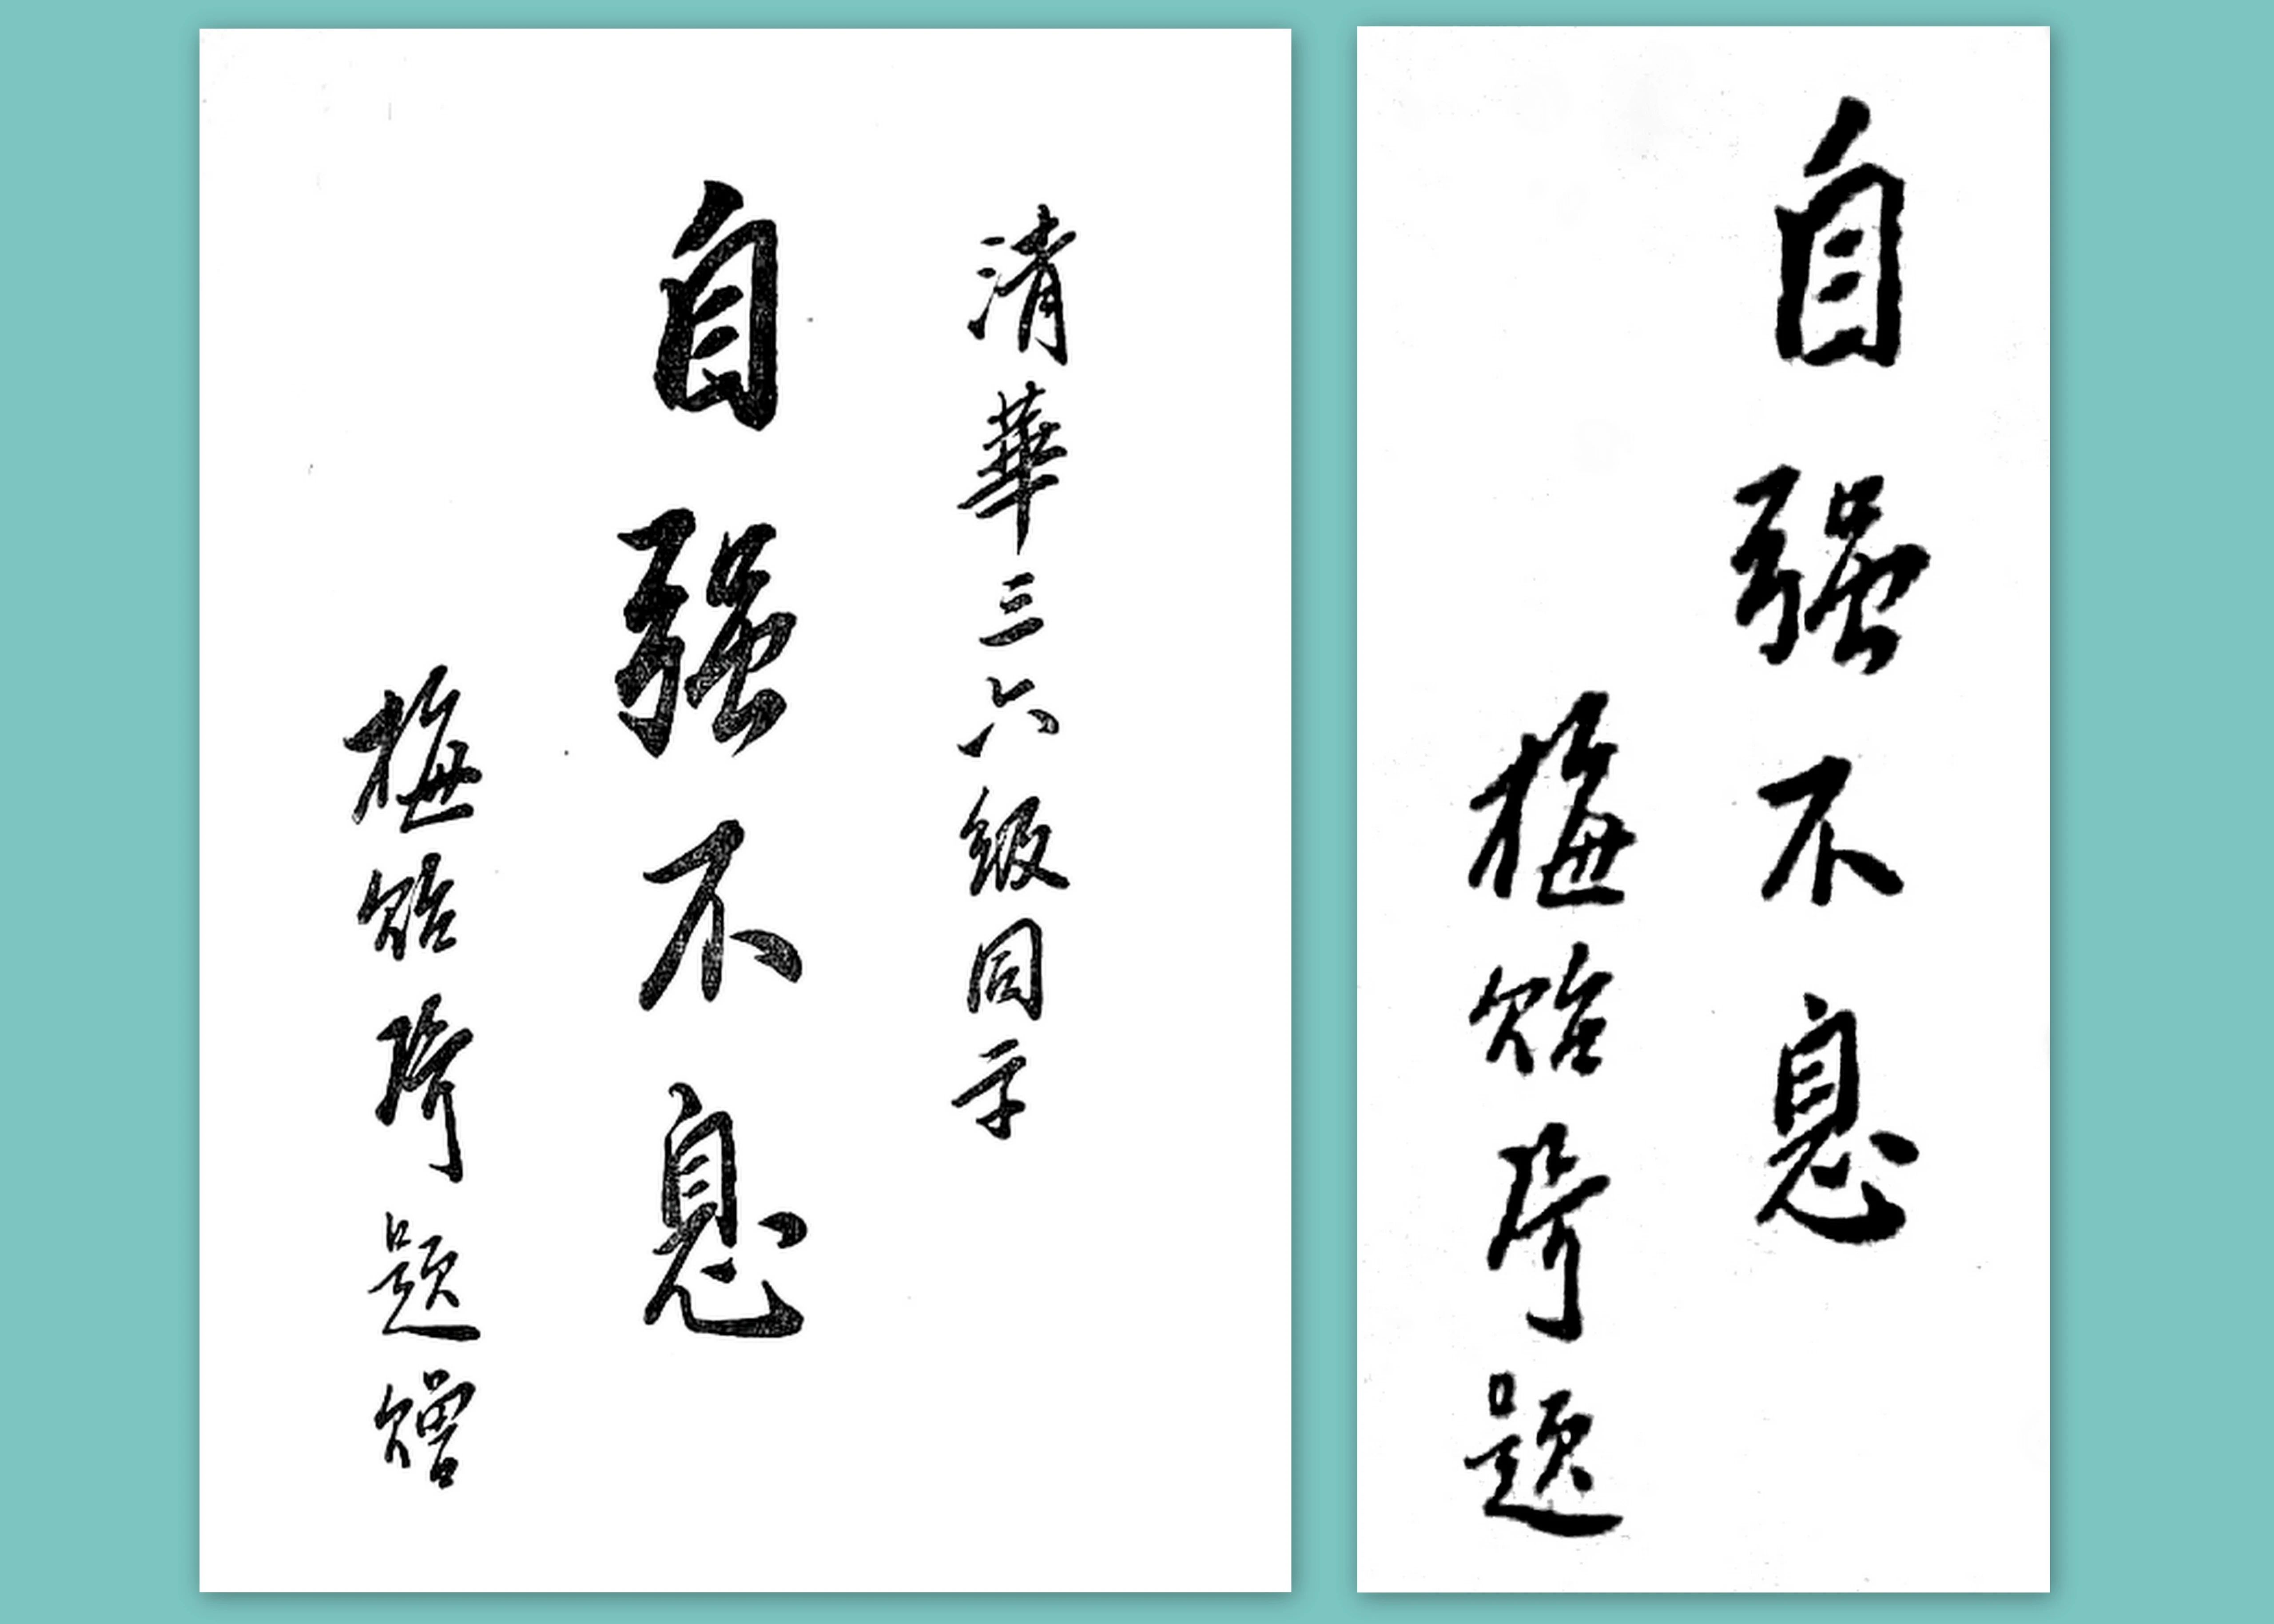 清華三六級同学
自强不息
梅貽琦題贈
自强不息
梅貽琦題